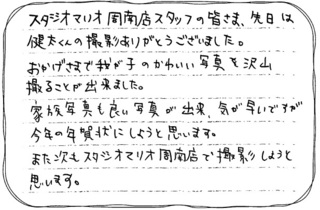 スタジオマリオ周南店スタッフの皆さま、先日は
健太くんの撮影ありがとうございました。
おかげさまで我が子のかわいい写真を沢山
撮ることが出来ました。
家族写真も良い写真が出来、気が早いですが
今年の年賀状にしようと思います。
また次もスタジオマリオ周南店で撮影しようと
思います。